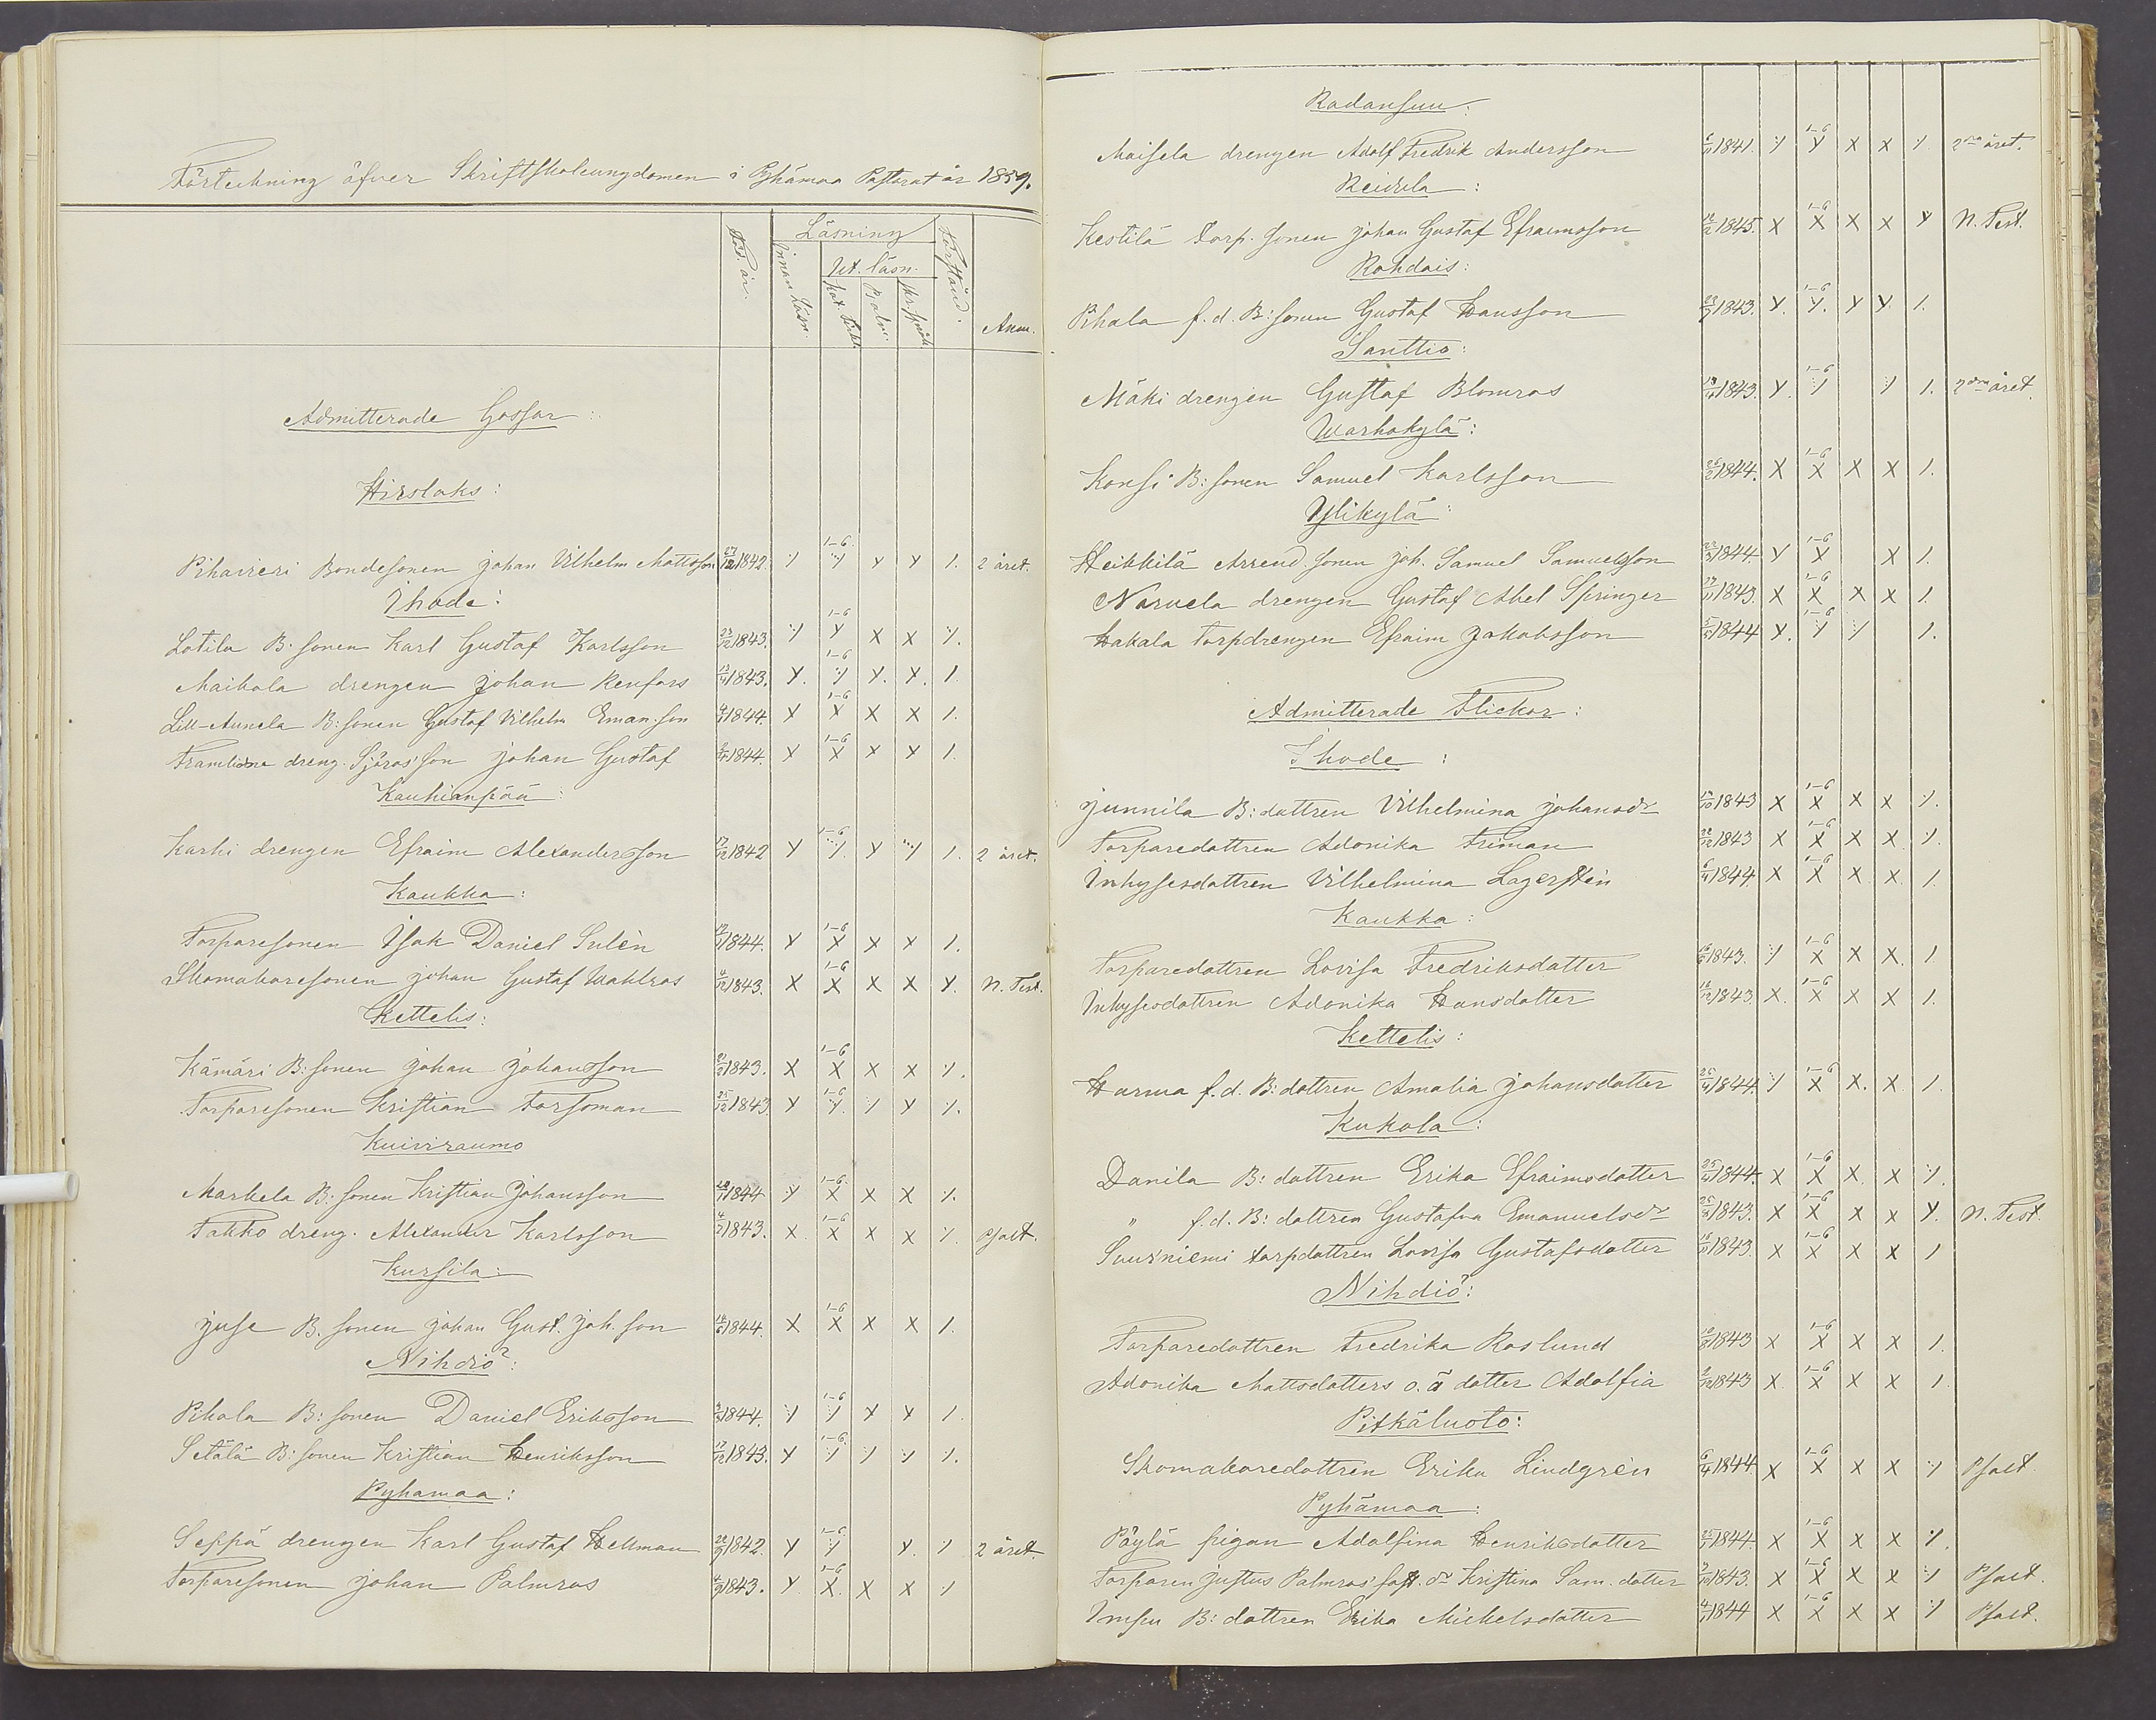 Förteckning öfver Skriftskoleungdomen i Pyhämaa Pastorat år 1859.
Född. år. Läsning Förstånd. Anm.
Innan läsn. Ut. läsn.
Admitterade Gossar:
Hirslaks:
Pihaveri Bondesonen Johan Vilhelm Mattsson 1842. 1-6 2 året.
Ihode:
Lotila B. sonen Karl Gustaf Karlsson 23/12 1843. 1-6
Maikola drengen Johan Renfors 1843. 1-6
Lill-Aunela B: sonen Gustaf Vilhelm Eman. son 1844. X 1-6 X X X
dreng. Sjöros' son Johan Gustaf 1844. 1-6
Kauhianpää:
Karhi drengen Efraim Alexandersson 1842 1-6 2 året.
Kaukka:
Torparesonen Isak Daniel Sulèn 1844. 1-6
Skomakaresonen Johan Gustaf Wahlros 4/12 1843. X 1-6 X X X N. Test.
Kettelis:
Kämäri B: sonen Johan Johansson 1843. X 1-6 X X X
Torparesonen Kristian Forsoman 25/12 1843 1-6
Kuivraumo
Markela B: sonen Kristian Johansson 1844 1-6 X X X
Takko dreng. Alexander Karlsson 4/2 1843. X 1-6 X X X psalt.
Kursila:
Juse B. sonen Johan Gust. Joh. son 1844. X 1-6 X X X
Nihdiö:
Pihala B: sonen Daniel Eriksson 1844. 1-6
Setälä B: sonen Kristian Henriksson 1843. 1-6
Pyhamaa:
Seppä drengen Karl Gustaf Hellman 1842. 1-6 2 året.
Torparesonen Johan Palmros 1843. 1-6 X X X
Radansuu:
Maisela drengen Adolf Fredrik Andersson 1841. 1-6 X X 2dra året.
Reidila:
Kestilä Torp. sonen Johan Gustaf Efraimsson 1845. X 1-6 X X X N. Test.
Rohdais:
Pihala f. d. B: sonen Gustaf Hansson 1843. 1-6
Santtio:
Mäki drengen Gustaf Blomros 1843. 1-6 2dra året.
Warhokylä:
Konsi B: sonen Samuel Karlsson 1844. X 1-6 X X X
Ylikylä:
Heikkilä Arrend. sonen Joh. Samuel Samuelsson 1844. 1-6
Naruela drengen Gustaf Abel Springer 1843. X 1-6 X X X
Hakala Torpdrengen Efraim Jakobsson 5/5 1844 1-6
Admitterade Flickor:
Ihode:
Junnila B: dottren Vilhelmina Johansdr 1843 X 1-6 X X X
Torparedottren Adonika Friman 1843 X 1-6 X X X
Inhysesdottren Vilhelmina Lagerstèn 1844 X 1-6 X X X
Kaukka:
Torparedottren Lovisa Fredriksdotter 1843. 1-6 X X X
Inhysesdottren Adonika Hansdotter 1843 X. 1-6 X X X
Kettelis:
Harma f. d. B: dottren Amalia Johansdotter 1844. 1-6 X X. X
Kukola:
Danila B: dottren Erika Efraimsdotter 1844. X 1-6 X X. X
" f. d. B: dottren Gustafva Emanuelsdr 1843. X 1-6 X X X N. Test.
Suurniemi torpdottren Lovisa Gustafsdotter 1843. X 1-6 X X X
Nihdiö:
Torparedottren Fredrika Roslund 1843 X 1-6 X X X
Adonika Mattsdotters o. ä dotter Adolfia 1843 X 1-6 X X X
Pitkäluoto:
Skomakaredottren Erika Lindgrèn 6/4 1844 X 1-6 X X X Psalt.
Pyhämaa:
Pöylä pigan Adolfina Henriksdotter 1844. X 1-6 X X X
Torparen Justus Palmros' fost. dr Kristina Sam. dotter 1843. X 1-6 X X X Psalt.
B: dottren Erika Michelsdotter 1844 X 1-6 X X X Psalt.